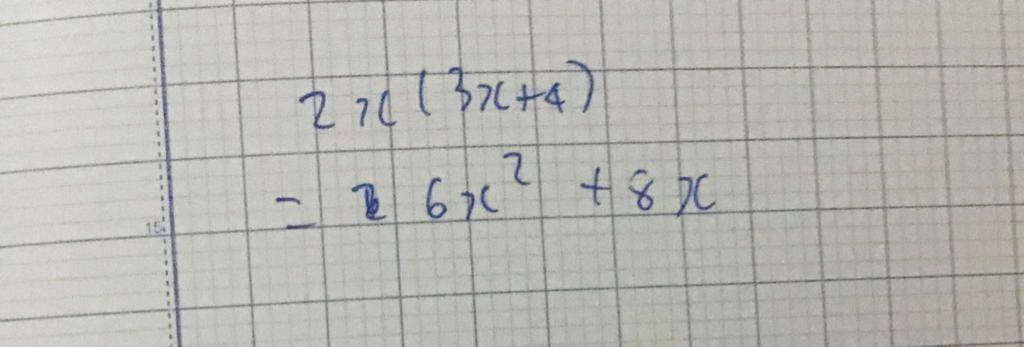 2x(3x+4)
= 6x² + 8x
15